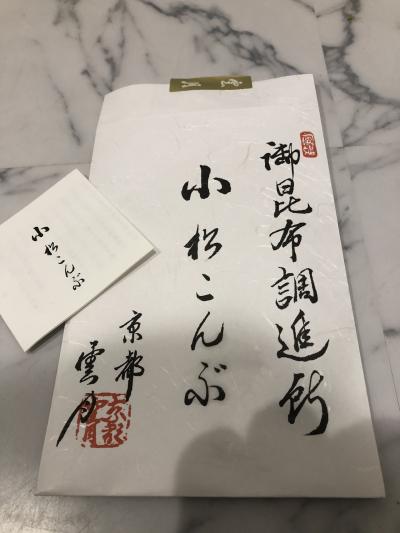 御昆布調進所
小松こんぶ
京都
雲月
小松こんぶ
雲月